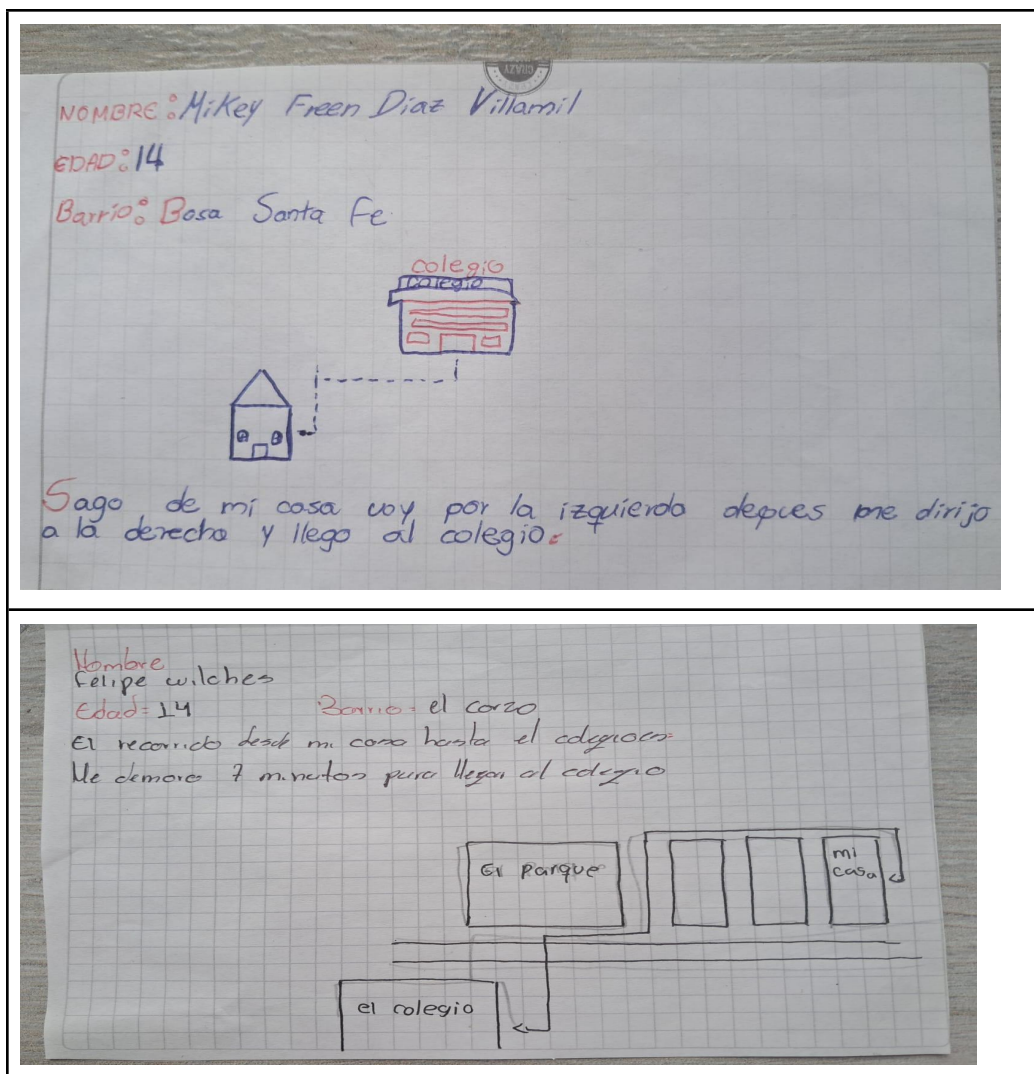 CRAZY
NOMBRE: Mikey Freen Diaz Villamil
EDAD: 14
Barrio: Bosa Santa Fe
colegio
colegio
Sago de mi casa voy por la izquierda depues me dirijo
a la derecha y llego al colegio.
Nombre
Felipe wilches
Edad = 14 Barrio = el corzo
El recorrido desde mi casa hasta el colegio es:
Me demoro 7 minutos para llegar al colegio
El Parque
mi
casa
el colegio